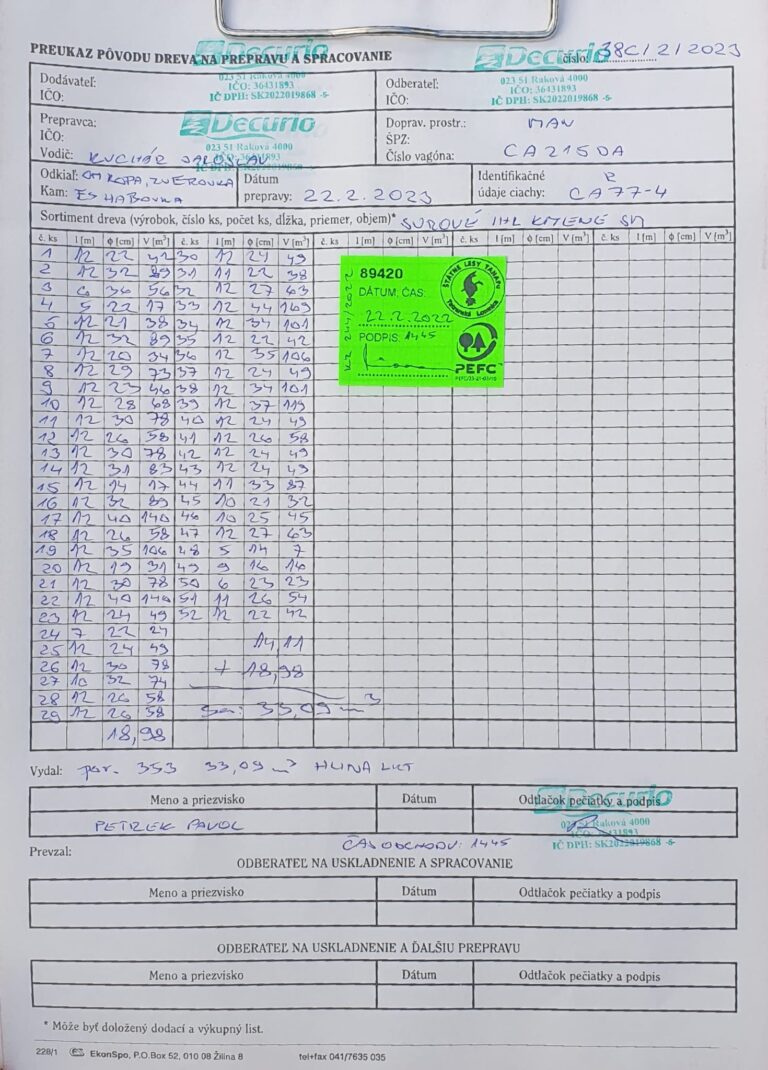 PREUKAZ PÔVODU DREVA NA PREPRAVU A SPRACOVANIE
Decurio
Decurio
číslo: 38C/2/2023
Dodávateľ:
023 51 Raková 4000
IČO: IČO: 36431893
IČ DPH: SK2022019868 -5-
Odberateľ:
023 51 Raková 4000
IČO: IČO: 36431893
IČ DPH: SK2022019868 -5-
Prepravca:
Decurio
IČO:
023 51 Raková 4000
Vodič: KUCHÁR JAROSLAV
Doprav. prostr.: MAN
ŠPZ:
Číslo vagóna: CA215DA
Odkiaľ: OM KOPA, ZVEROVKA
Kam: ES HABOVKA
Dátum
prepravy: 22.2.2023
Identifikačné R
údaje ciachy: CA77-4
Sortiment dreva (výrobok, číslo ks, počet ks, dĺžka, priemer, objem)* SUROVÉ IHL KMENE SM
č. ks l [m] ϕ [cm] V [m³] č. ks l [m] ϕ [cm] V [m³] č. ks l [m] ϕ [cm] V [m³] č. ks l [m] ϕ [cm] V [m³]
1 12 22 42 30 12 24 49
2 12 32 89 31 11 22 38
3 6 36 56 32 12 27 63
4 5 22 17 33 12 44 169
5 12 21 38 34 12 34 101
6 12 32 89 35 12 22 42
7 12 20 34 36 12 35 106
8 12 29 73 37 12 24 49
9 12 23 46 38 12 34 101
10 12 28 68 39 12 37 119
11 12 30 78 40 12 24 49
12 12 26 58 41 12 26 58
13 12 30 78 42 12 24 49
14 12 31 83 43 12 24 49
15 12 14 17 44 11 33 87
16 12 32 89 45 10 21 32
17 12 40 140 46 10 25 45
18 12 26 58 47 12 27 63
19 12 35 106 48 5 14 7
20 12 19 31 49 9 16 16
21 12 30 78 50 6 23 23
22 12 40 140 51 11 26 54
23 12 24 49 52 12 22 42
24 7 22 24
25 12 24 49 14,11
26 12 30 78 + 18,98
27 10 32 74
28 12 26 58
29 12 26 58 Sa: 33,09 m³
18,98
89420
DÁTUM, ČAS:
22.2.2022
PODPIS: 1445
ŠTÁTNE LESY TANAPu
Tatranská Lomnica
PEFC
Vydal: por. 353 33,09 m³
Meno a priezvisko Dátum Odtlačok pečiatky a podpis
Decurio
PETREK PAVOL
023 51 Raková 4000
IČ DPH: SK2022019868 -5-
Prevzal:
ČAS ODCHODU: 1445
ODBERATEĽ NA USKLADNENIE A SPRACOVANIE
Meno a priezvisko Dátum Odtlačok pečiatky a podpis
ODBERATEĽ NA USKLADNENIE A ĎALŠIU PREPRAVU
Meno a priezvisko Dátum Odtlačok pečiatky a podpis
* Môže byť doložený dodací a výkupný list.
228/1 EkonSpo, P.O.Box 52, 010 08 Žilina 8 tel+fax 041/7635 035